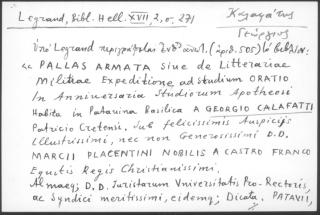 Legrand, Bibl. Hell. XVII, 2, σ, 271
Καλαφάτης
Γεώργιος
Ὑπὸ Legrand περιγράφεται (ἀριθ. 505) τὸ βιβλίον:
« PALLAS ARMATA Siue de Litterariae
Militrae Expeditione ad studium ORATIO
In Anniversaria Studiorum Apotheosi
Habita in Patauina Basilica A GEORGIO CALAFATTI
Patricio Cretensi. Sub felicissimis Auspicijs
Illustrissimi, nec non Generosissimi D.D.
MARCII PLACENTINI NOBILIS A CASTRO FRANCO
Equitis Regis Christianissimi.
Almaeq; D.D. Iuristarum Vniversitatis Pro-Rectoris,
ac Syndici meritissimi, eidemq; Dicata. PATAVII,